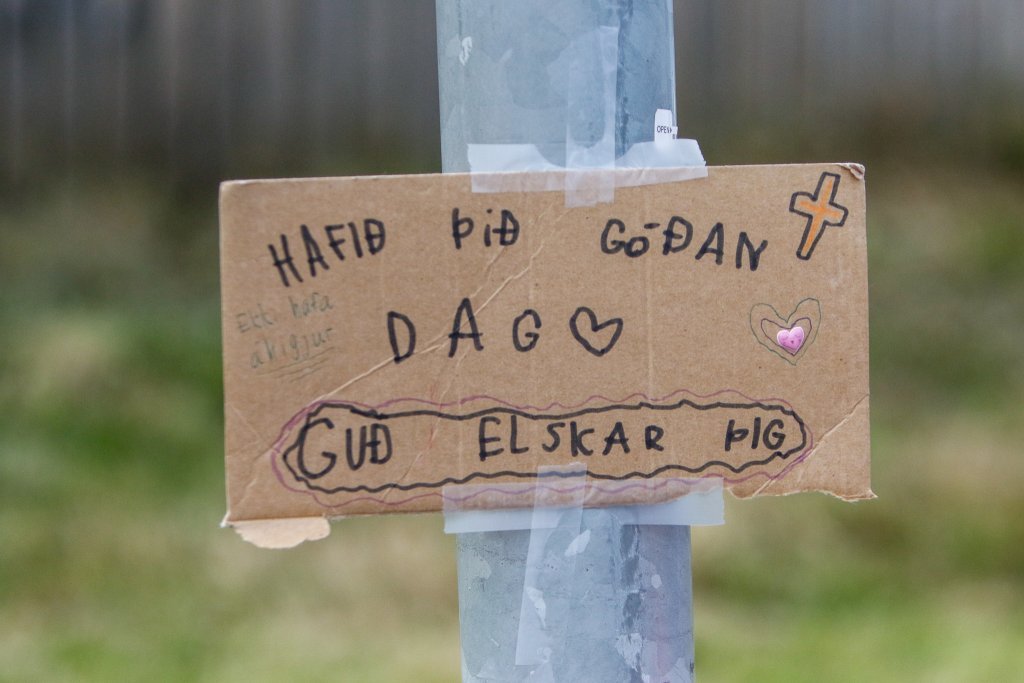 OPEN
HAFIÐ ÞIÐ GÓÐAN
Ekki hafa
áhigjur
DAG
GUÐ ELSKAR ÞIG